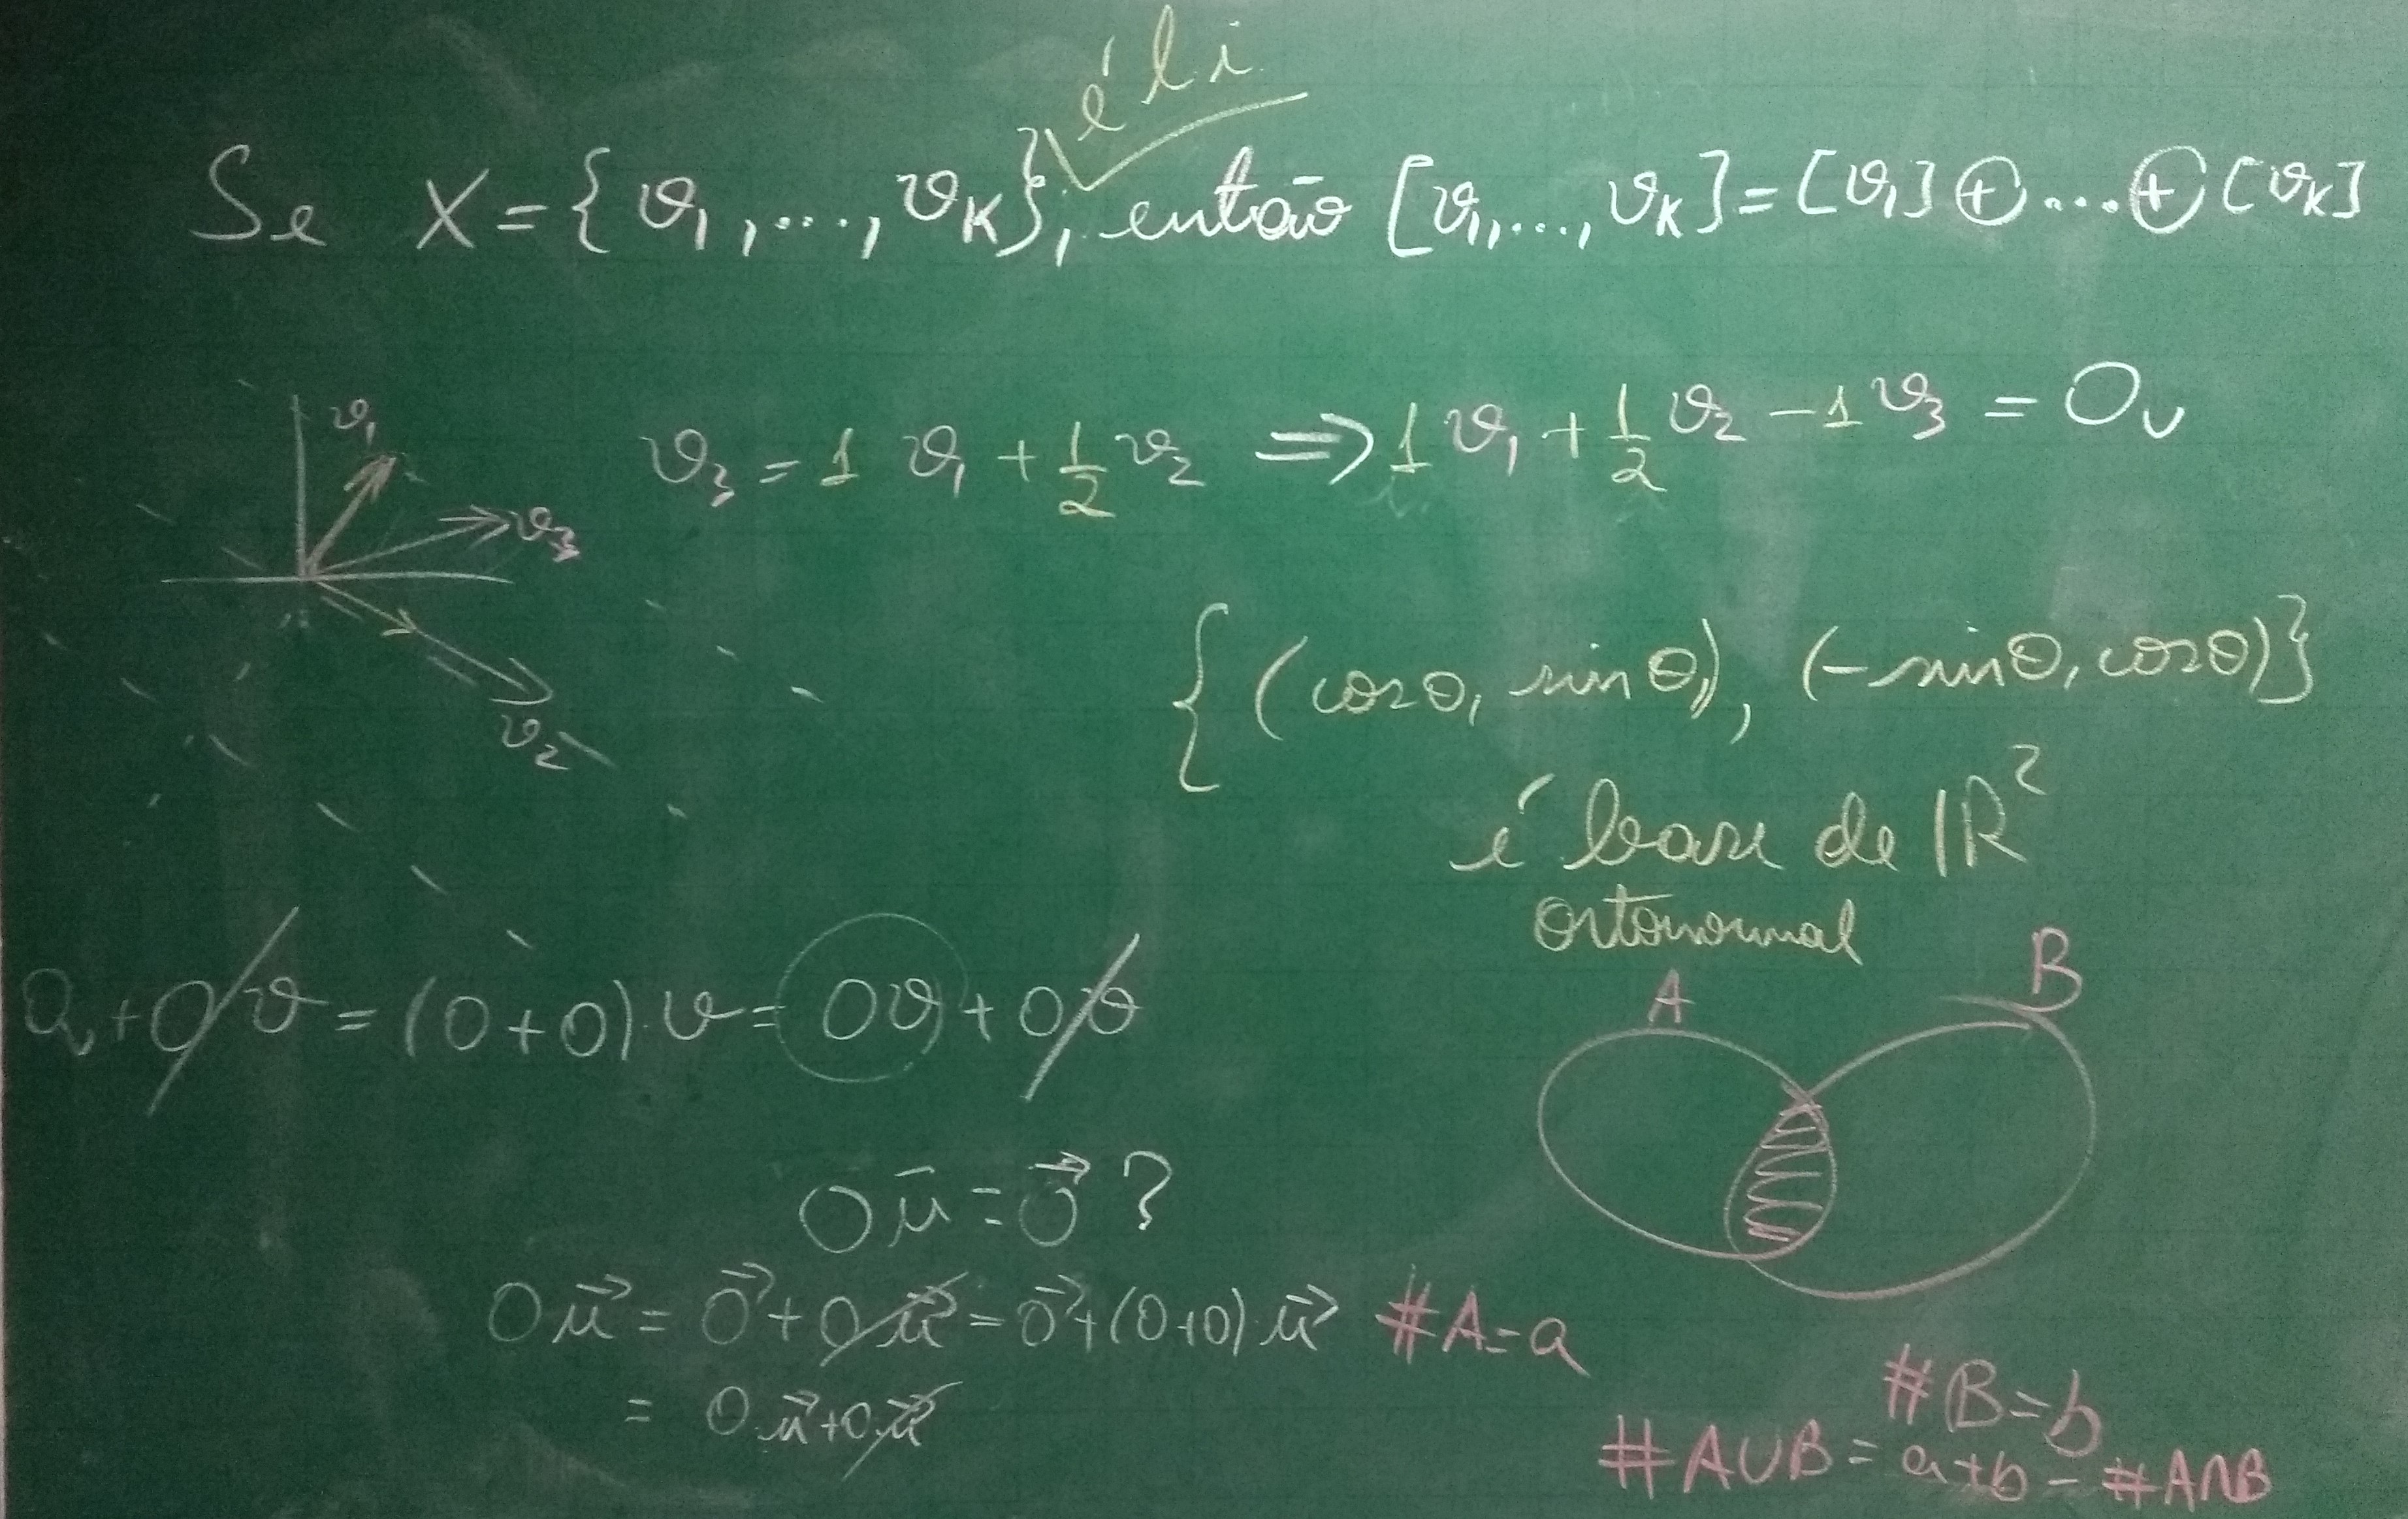 é li
Se X = {v₁, ..., vₖ}, então [v₁, ..., vₖ] = [v₁] ⊕ ... ⊕ [vₖ]
v₁
v₃
v₂
v₃ = 1 v₁ + 1/2 v₂ ⟹ 1 v₁ + 1/2 v₂ - 1 v₃ = 0ᵥ
{(cosθ, sinθ), (-sinθ, cosθ)}
é base de ℝ²
ortonormal
0ᵥ + 0v = (0+0)·v = 0v + 0v
A
B
0u⃗ = 0⃗ ?
0u⃗ = 0⃗ + 0u⃗ = 0⃗ + (0+0)·u⃗
= 0·u⃗ + 0·u⃗
#A = a
#B = b
#A∪B = a+b - #A∩B